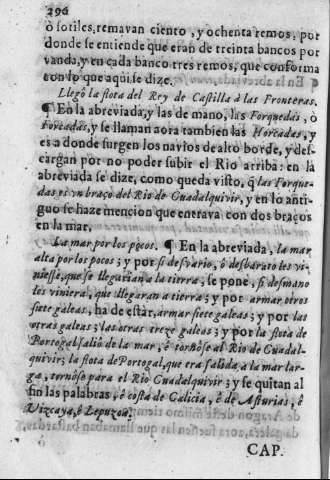 296
ò sotiles, remavan ciento, y ochenta remos, por
donde se entiende que eran de treinta bancos por
vanda, y en cada banco tres remos, que conforma
con lo que aqui se dize.
Llegò la flota del Rey de Castilla à las Fronteras.
¶ En la abreviada, y las de mano, las Forquedas, ò
Forcadas, y se llaman aora tambien las Horcadas, y
es a donde surgen los navios de alto borde, y des-
cargan por no poder subir el Rio arriba: en là
abreviada se dize, como queda visto, q̃ las Forque-
das es vn braço del Rio de Guadalquivir, y en lo anti-
guo se haze mencion que entrava con dos braços
en la mar.
La mar por los pocos. ¶ En la abreviada, la mar
alta por los pocos; y por si desvario, ò desbarato les vi-
niesse, que se llegarian a la tierra, se pone, si desmano
les viniera, que llegaran a tierra; y por armar otros
siete galeas, ha de estàr, armar siete galeas; y por las
otras galeas; las otras treze galeas; y por la flota de
Portogal saliò de la mar, è tornòse al Rio de Guadal-
quivir; la flota de Portogal, que era salida a la mar lar-
ga, tornòse para el Rio Guadalquivir; y se quitan al
fin las palabras, è costa de Galicia, è de Asturias, è
Vizcaya, è Lepuzca.
CAP.